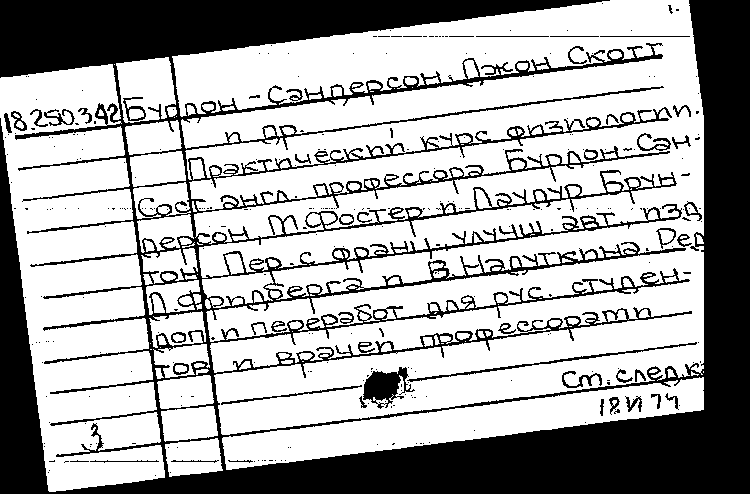 1.
18.250.3.42 Бурдон-Сандерсон, Джон Скотт
и др.
Практический курс физиологии.
Сост. англ. профессора Бурдон-Сан-
дерсон, М. Фостер и Лаудур Брун-
тон. Пер. с франц., улучш. авт., изд.
Д. Фридберга и В. Надуткина. Ред.
доп. и переработ для рус. студен-
тов и врачей профессорами
См. след. к
18 И 74
3